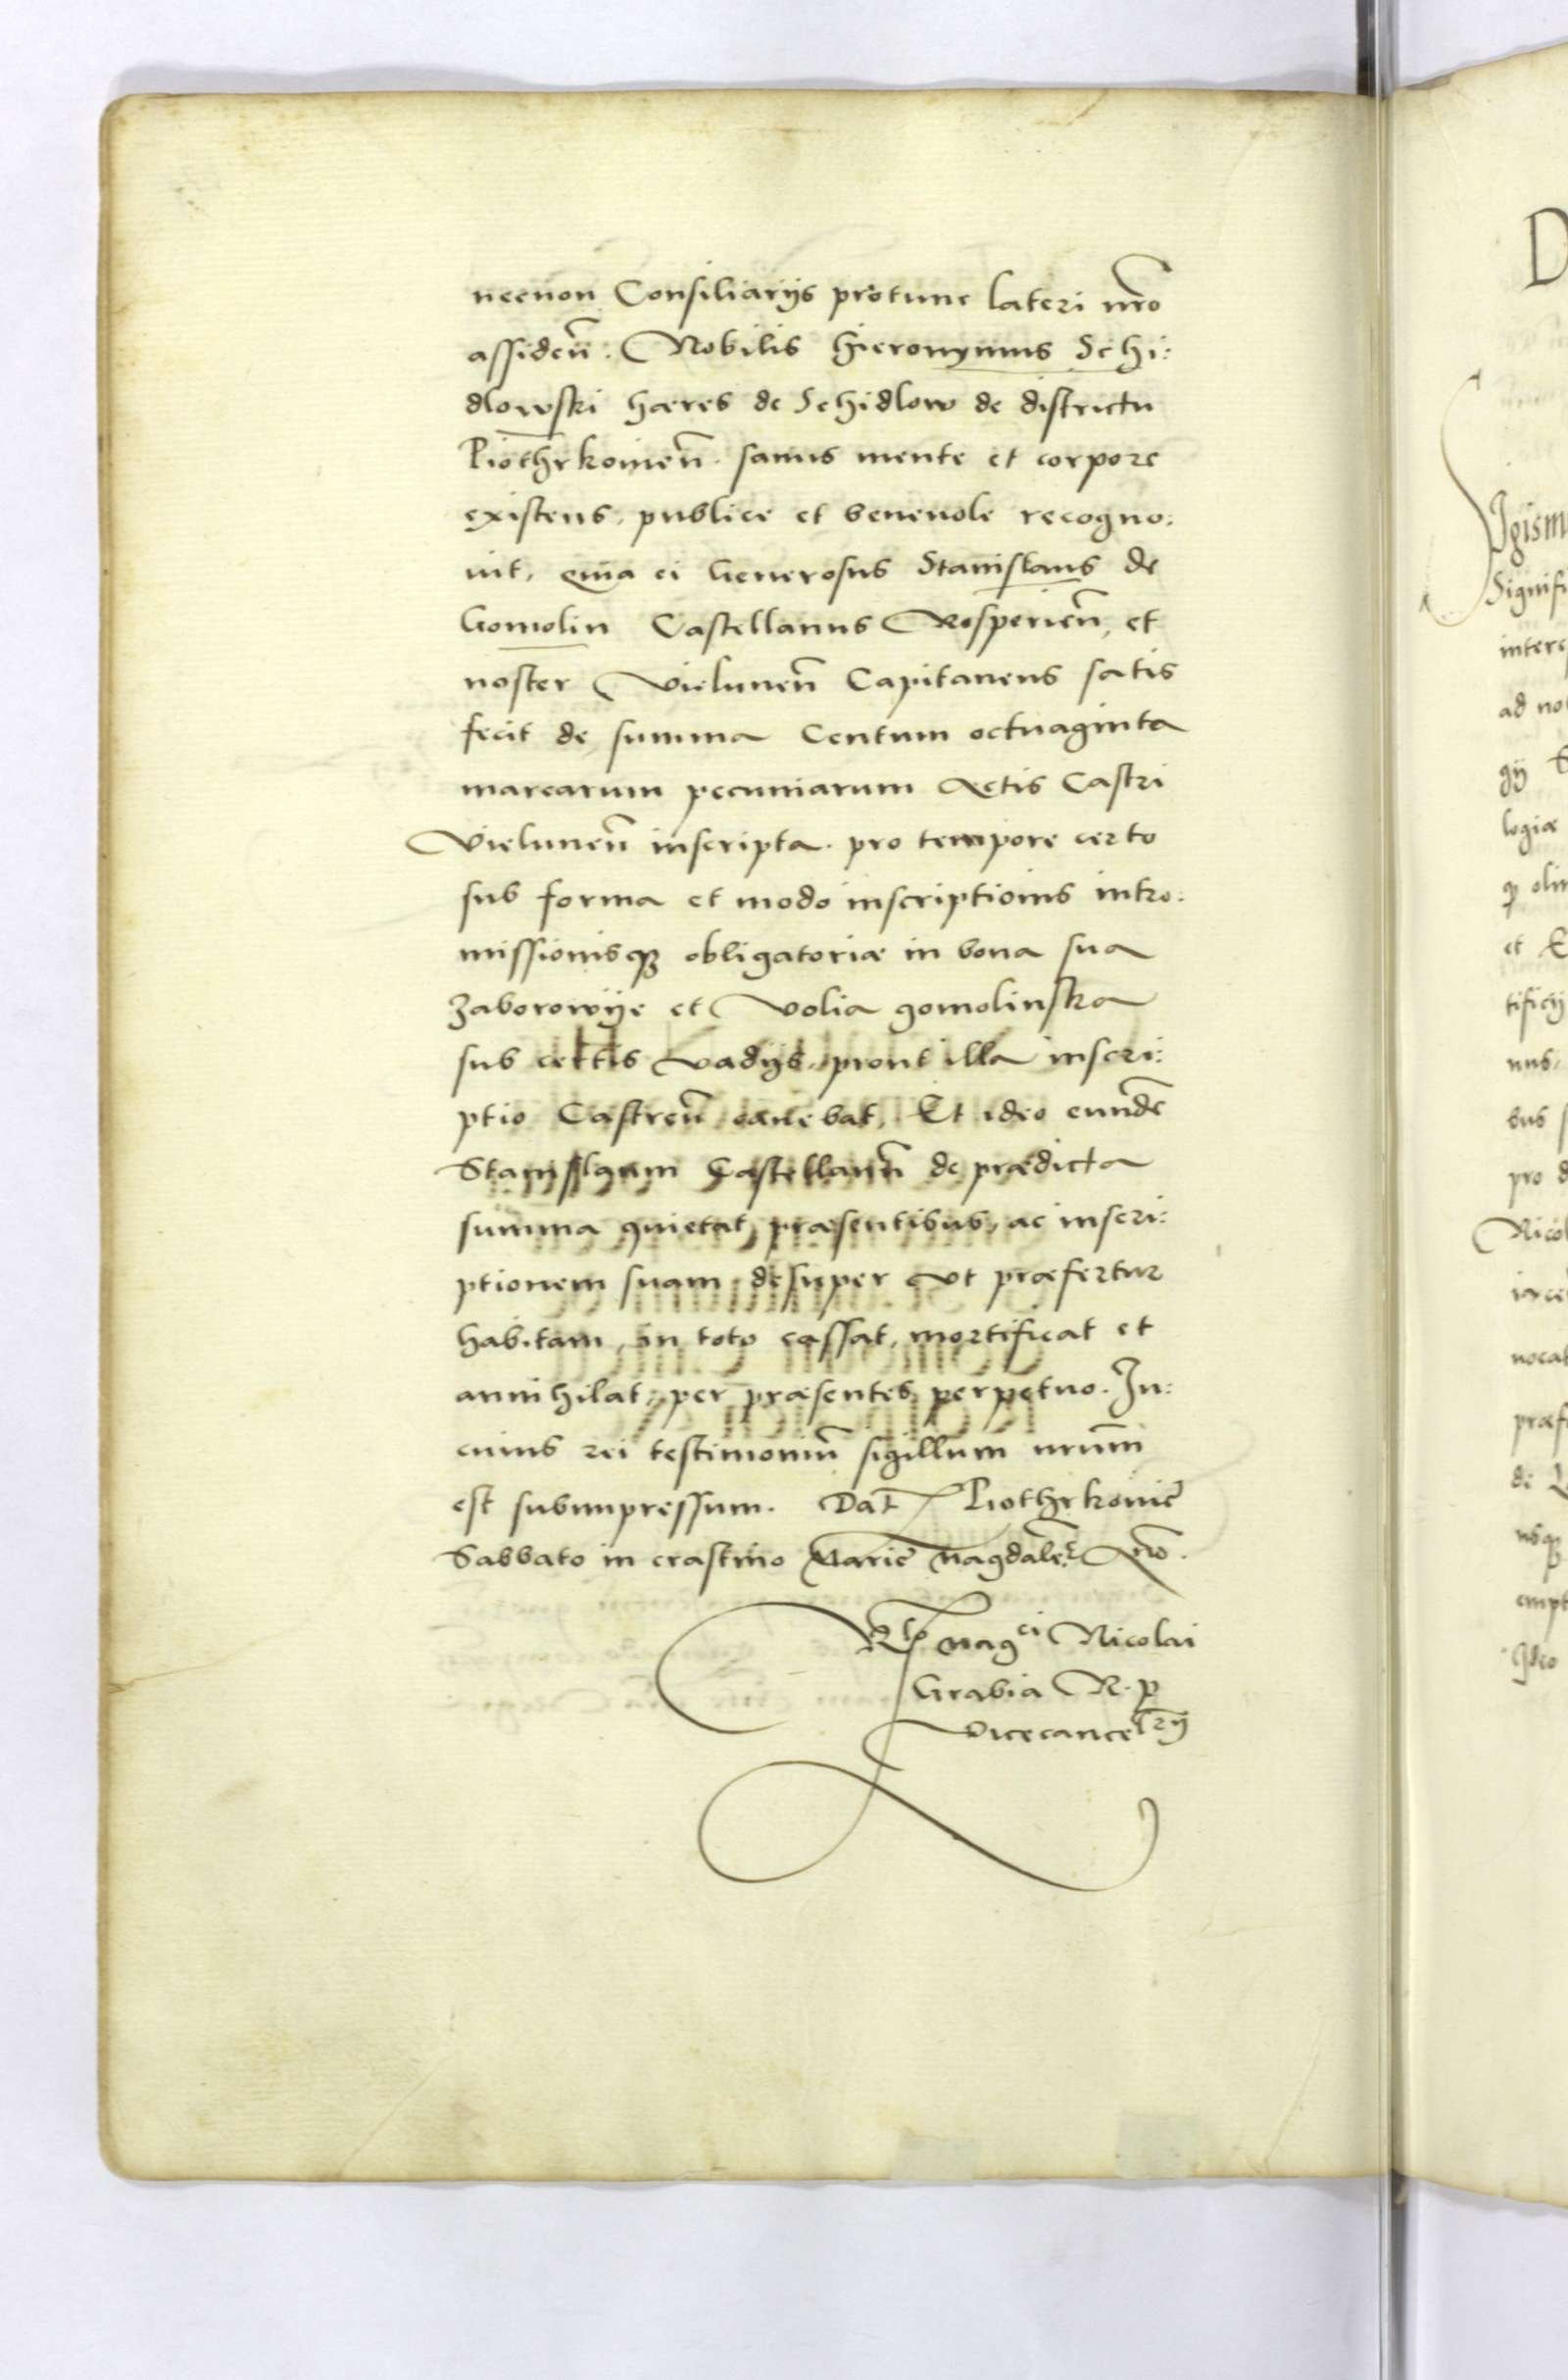 necnon Consiliarijs protunc lateri nr̄o
assiden̄. Nobilis Hieronymus Schi:
dlowski hæres de Schidlow de districtu
Piothrkouien̄. sanus mente et corpore
existens, publice et beneuole recogno:
uit, quia ei Generosus Stanislaus de
Gomolin Castellanus Rosperien̄, et
noster Vielunen̄ Capitaneus satis
fecit de summa Centum octuaginta
marcarum pecuniarum Actis Castri
Vielunen̄ inscripta. pro tempore certo
sub forma et modo inscriptionis intro:
missionisqꝫ obligatoriæ in bona sua
Zaborowije et Volia gomolinska
sub certis vadijs, prout illa inscri:
ptio Castren̄ canebat, Et ideo eundē
Stanislaum Castellanū de prædicta
summa quietat præsentibus, ac inscri:
ptionem suam desuper vt præfertur
habitam, in toto cassat, mortificat et
annihilat, per præsentes perpetuo. In:
cuius rei testimoniū sigillum nrūm
est subimpressum. Dat̄ Piothrkouiē
Sabbato in crastino Marie Magdalēe Aῡo.
Rło mag^ci Nicolai
Grabia R. p
Vicecancel^rij
D
igism
Signifi
inter
ad no
gij
logiæ
qꝫ oli
et
tificij
nus,
bus
pro d
Nicol
iace
uocat
præf
de
usqꝫ
empt
Ideo